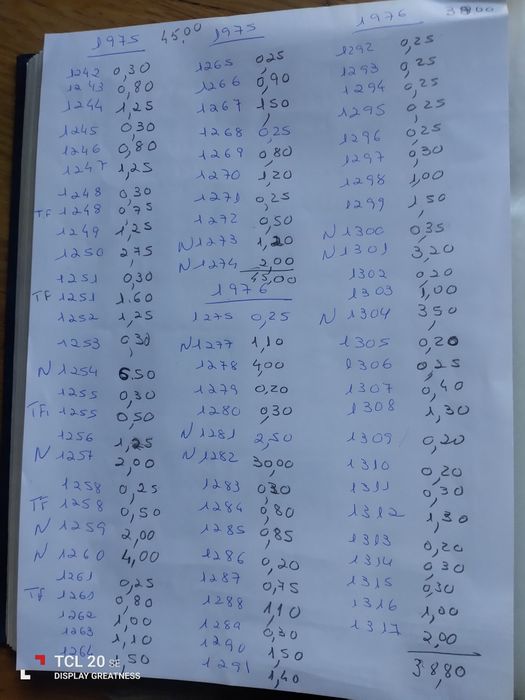 1975 45,00
1242 0,30
1243 0,80
1244 1,25
1245 0,30
1246 0,80
1247 1,25
1248 0,30
TF 1248 0,75
1249 1,25
1250 2,75
1251 0,30
TF 1251 1,60
1252 1,25
1253 0,30
N 1254 6,50
1255 0,30
TF 1255 0,50
1256 1,25
N 1257 2,00
1258 0,25
TF 1258 0,50
N 1259 2,00
N 1260 4,00
1261 0,25
TF 1261 0,80
1262 1,00
1263 1,10
1264 1,50
1975
1265 0,25
1266 0,90
1267 1,50
1268 0,25
1269 0,80
1270 1,20
1271 0,25
1272 0,50
N 1273 1,20
N 1274 2,00
45,00
1976
1275 0,25
N 1277 1,10
1278 4,00
1279 0,20
1280 0,30
N 1281 2,50
N 1282 30,00
1283 0,30
1284 0,80
1285 0,85
1286 0,20
1287 0,75
1288 1,10
1289 0,30
1290 1,50
1291 1,40
1976
1292 0,25
1293 0,25
1294 0,25
1295 0,25
1296 0,25
1297 0,30
1298 1,00
1299 1,50
N 1300 0,35
N 1301 3,20
1302 0,20
1303 1,00
N 1304 3,50
1305 0,20
1306 0,25
1307 0,40
1308 1,30
1309 0,20
1310 0,20
1311 0,30
1312 1,30
1313 0,20
1314 0,30
1315 0,30
1316 1,00
1317 2,00
38,80
TCL 20 SE
DISPLAY GREATNESS